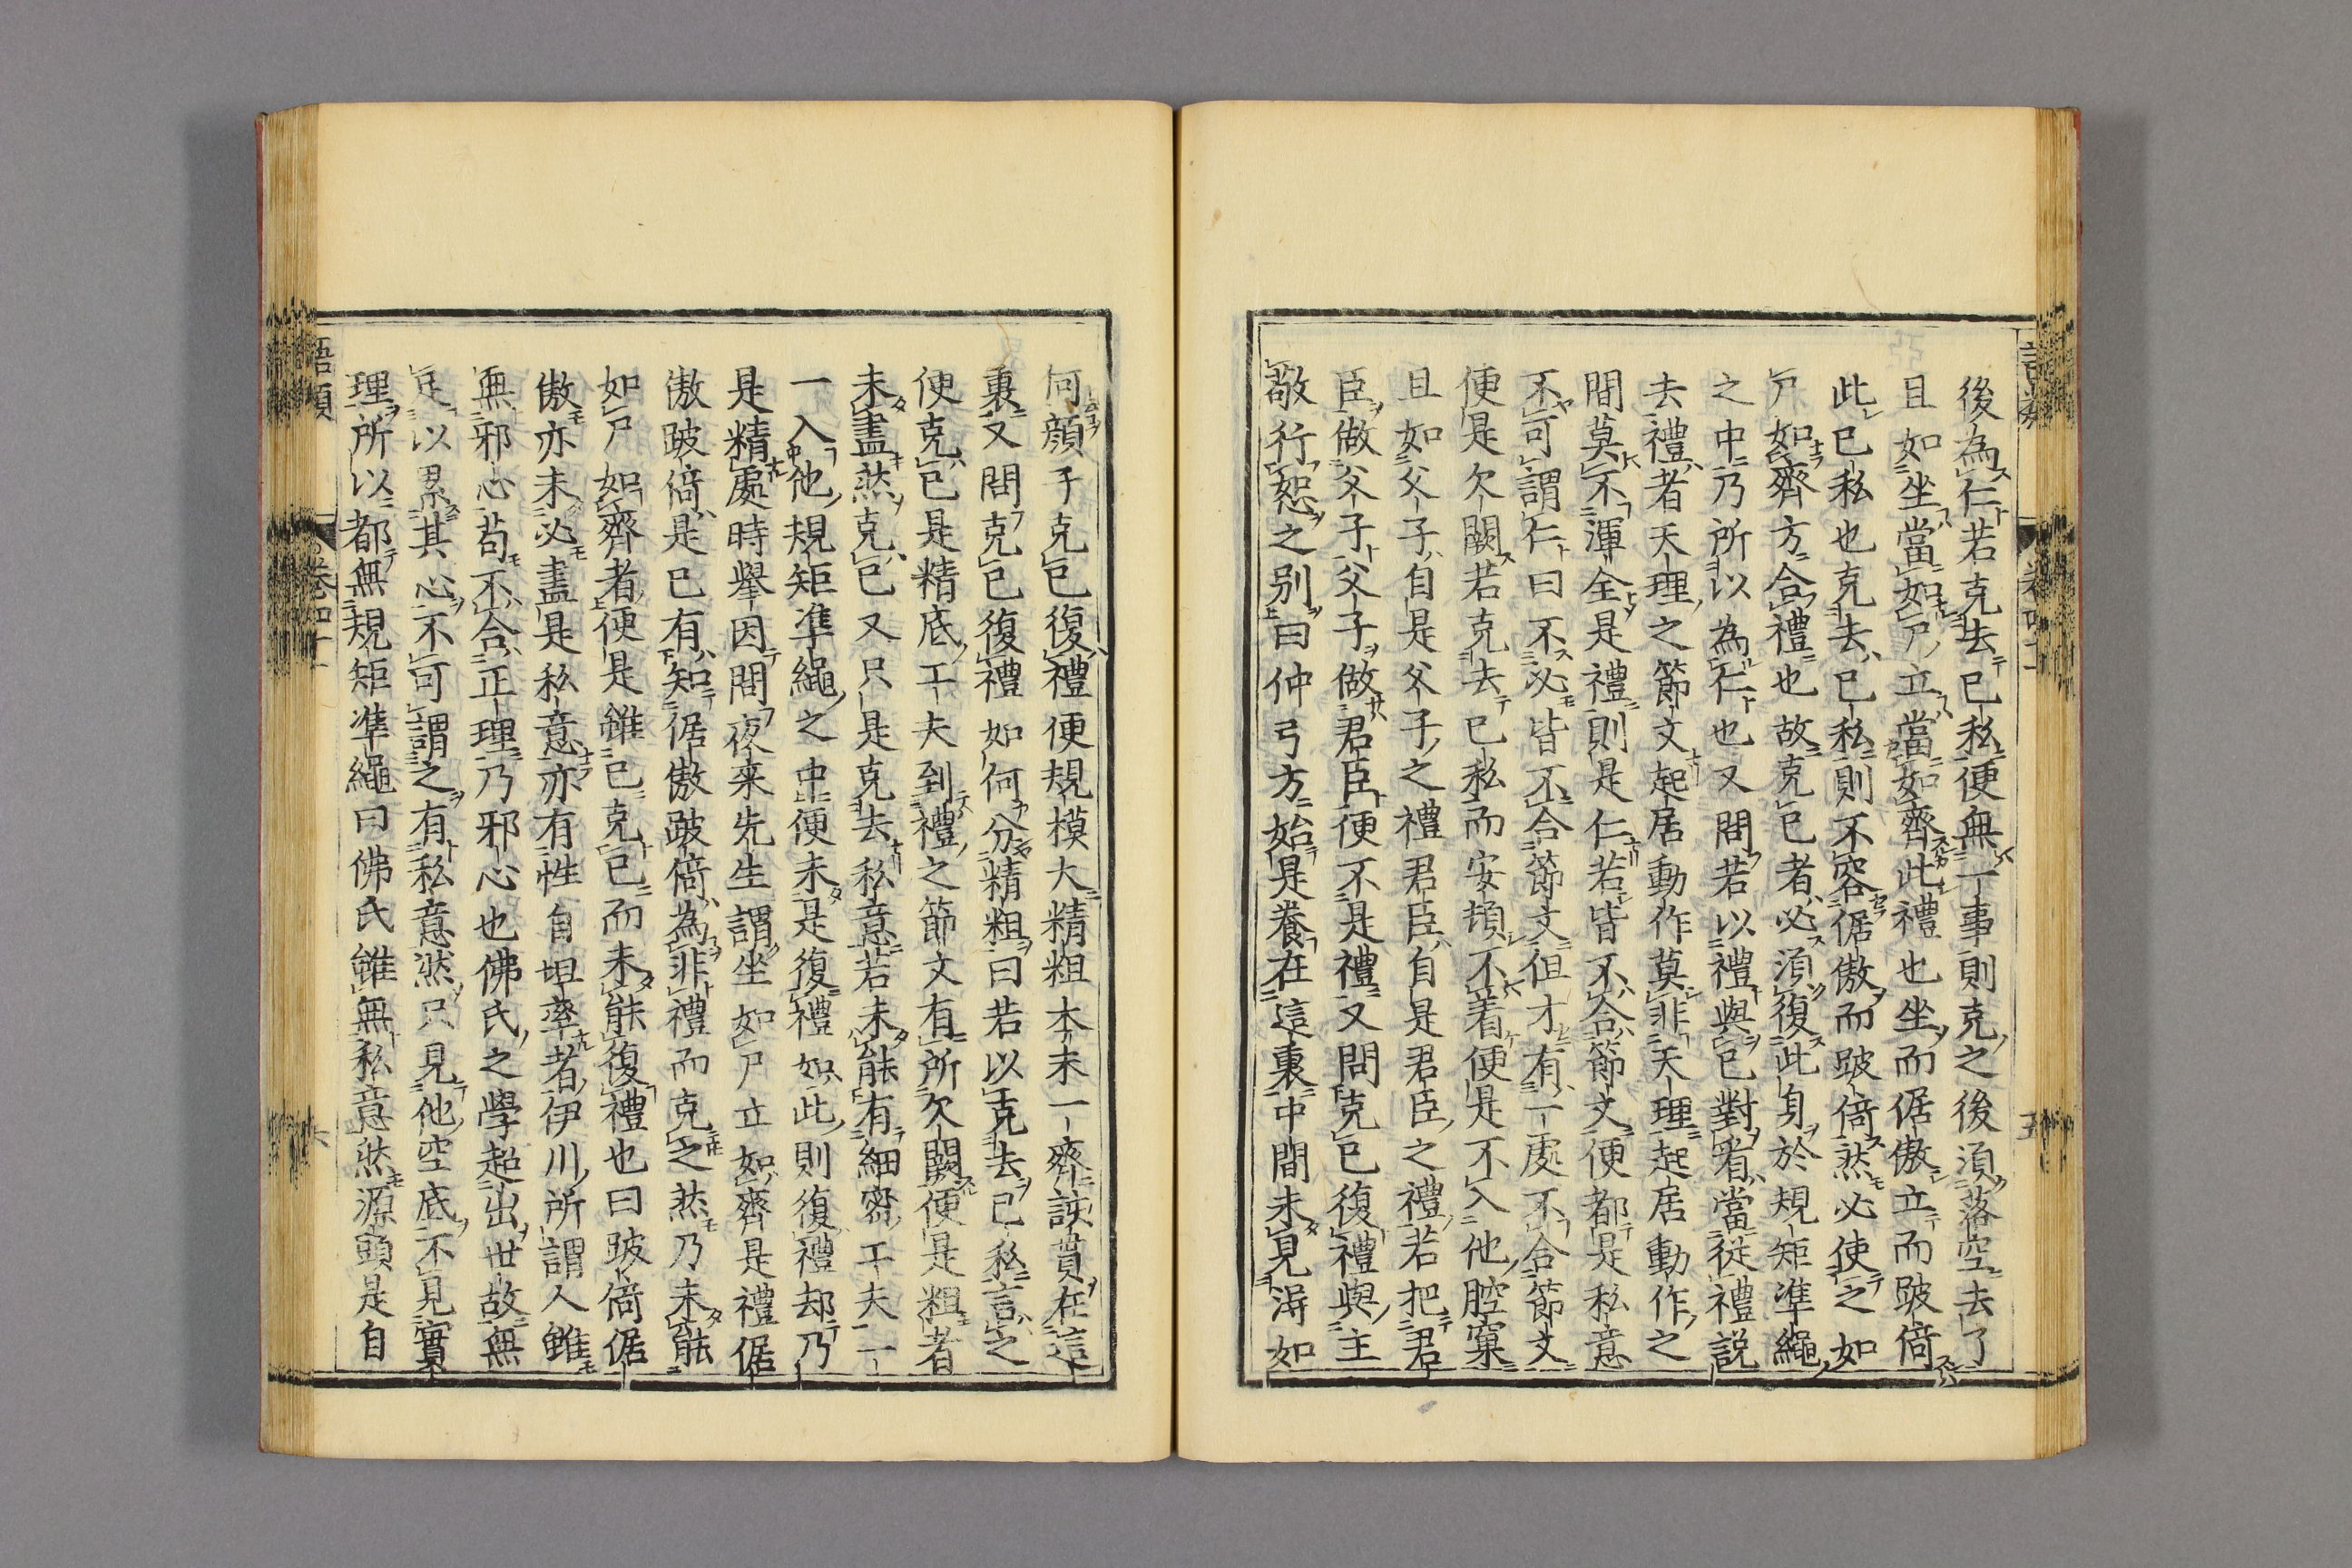 後為仁若克去已私便無一事則克之後湏落空去了
且如坐當如尸立當如齊此禮也坐而倨傲立而跛倚
此已私也克去已私則不容倨傲而跛倚然必使之如
尸如齊方合禮也故克已者必湏復此身於規矩凖繩
之中乃所以為仁也又問若以禮與已對看當從禮說
去禮者天理之節文起居動作莫非天理起居動作之
間莫不渾全是禮則是仁若皆不合節文便都是私意
不可謂仁曰不必皆不合節文但才有一處不合節文
便是欠闕若克去已私而安頓不着便是不入他腔窠
且如父子自是父子之禮君臣自是君臣之禮若把君
臣做父子父子做君臣便不是禮又問克已復禮與主
敬行恕之别曰仲弓方始是養在這裏中間未見淂如
何顔子克已復禮便規模大精粗本末一齊該貫在這
裏又問克已復禮如何分精粗曰若以克去已私言之
便克已是精底工夫到禮之節文有所欠闕便是粗者
未盡然克已又只是克去私意若未能有細宻工夫一一
入他規矩凖繩之中便未是復禮如此則復禮却乃
是精處時舉因問夜来先生謂坐如尸立如齊是禮倨
傲跛倚是已有知倨傲跛倚為非禮而克之然乃未能
如尸如齊者便是雖已克已而未能復禮也曰跛倚倨
傲亦未必盡是私意亦有性自坦率者伊川所謂人雖
無邪心苟不合正理乃邪心也佛氏之學超出世故無
足以累其心不可謂之有私意然只見他空底不見實
理所以都無規矩凖繩曰佛氏雖無私意然源頭是自
語類 卷四十一